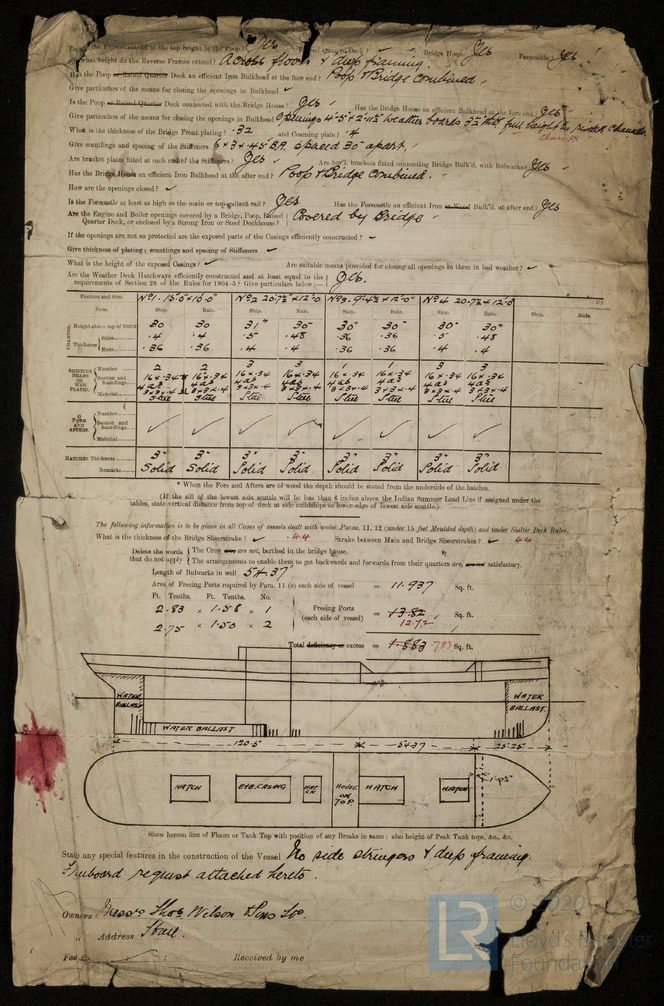 Do the Frames extend to the top height in the Poop? Yes Quarter Deck? Bridge House Yes Forecastle Yes
what height do the Reverse Frames extend? Across floors & deep framing.
Has the Poop or Raised Quarter Deck an efficient Iron Bulkhead at the fore end? Poop & Bridge Combined.
Give particulars of the means for closing the openings in Bulkhead
Is the Poop or Raised Quarter Deck connected with the Bridge House? Yes Has the Bridge House an efficient Bulkhead at the fore end? Yes
Give particulars of the means for closing the openings in Bulkhead Openings 4'-5" x 2'-11½" weather boards full height in riveted channels
What is the thickness of the Bridge Front plating? .32 and Coaming plate? .4
Give scantlings and spacing of the Stiffeners 6 x 3 x .45 B.A. spaced 30" apart.
Are bracket plates fitted at each end of the Stiffeners? Yes Are hor'l. brackets fitted connecting Bridge Bulk'd. with Bulwarks Yes
Has the Bridge House an efficient Iron Bulkhead at the after end? Poop & Bridge Combined.
How are the openings closed?
Is the Forecastle at least as high as the main or top-gallant rail? Yes Has the Forecastle an efficient Iron or Wood Bulk'd. at after end? Yes
Are the Engine and Boiler openings covered by a Bridge, Poop, Raised Quarter Deck, or enclosed by a Strong Iron or Steel Deckhouse? Covered by Bridge
If the openings are not so protected are the exposed parts of the Casings efficiently constructed?
Give thickness of plating; scantlings and spacing of Stiffeners
What is the height of the exposed Casings? Are suitable means provided for closing all openings in them in bad weather?
Are the Weather Deck Hatchways efficiently constructed and at least equal to the requirements of Section 28 of the Rules for 1904-5? Give particulars below:— Yes.
Position and size. No 1. 15'0" x 16'0" No 2 20'-7½" x 12'0 No 3. 9'-4½" x 12'0" No 4 20'-7½" x 12'0
Item. Ship. Rule. Ship. Rule. Ship. Rule. Ship. Rule. Ship. Rule.
COAMING. Height above top of Deck 30 30 31" 30" 30" 30" 30" 30"
Thickness Sides .4 .4 .5 .48 .36 .36 .5 .48
Ends .36 .36 .4 .4 .36 .36 .4 .4
SHIFTING BEAMS OR WEB PLATES. Number 2 2 3 3 1 1 3 3
Section and Scantlings. 16 x .34 16 x .34 16 x .34 16 x .34 16 x .34 16 x .34 16 x .34 16 x .34
Material Steel Steel Steel Steel Steel
FORE AND AFTERS. Number
Section and Scantlings.
Material
HATCHES Thickness 3" 3" 3" 3" 3" 3" 3" 3"
Remarks Solid Solid Solid Solid Solid Solid Solid Solid
* When the Fore and Afters are of wood the depth should be stated from the underside of the hatches.
(If the sill of the lowest side scuttle will be less than 6 inches above the Indian Summer Load Line if assigned under the
tables, state vertical distance from top of deck at side amidships to lower edge of lowest side scuttle.)
The following information is to be given in all Cases of vessels dealt with under Paras. 11, 12 (under 15 feet Moulded depth) and under Shelter Deck Rules.
What is the thickness of the Bridge Sheerstrake? .44 Strake between Main and Bridge Sheerstrakes? .44
Delete the words that do not apply
The Crew are, are not, berthed in the bridge house.
The arrangements to enable them to get backwards and forwards from their quarters are, are not satisfactory.
Length of Bulwarks in well 54.37
Area of Freeing Ports required by Para. 11 (e) each side of vessel = 11.937 Sq. ft.
Ft. Tenths. Ft. Tenths. No.
2.83 x 1.58 x 1
2.75 x 1.50 x 2
Freeing Ports (each side of vessel) = 13.82 12.72 Sq. ft.
Total deficiency or excess = 1.883 .783 Sq. ft.
WATER BALLAST
WATER BALLAST
WATER BALLAST
120.5' 54.37 25.25
HATCH ENG. CASING HATCH HOUSE ON TOP HATCH HATCH
Show hereon line of Floors or Tank Top with position of any Breaks in same; also height of Peak Tank tops, &c., &c.
State any special features in the construction of the Vessel No side stringers & deep framing.
Freeboard request attached hereto.
Owners Messrs Thos Wilson & Sons Ltd.
" Address Hull.
Fee £ Received by me
LR
© 2020
Lloyd's Register
Foundation